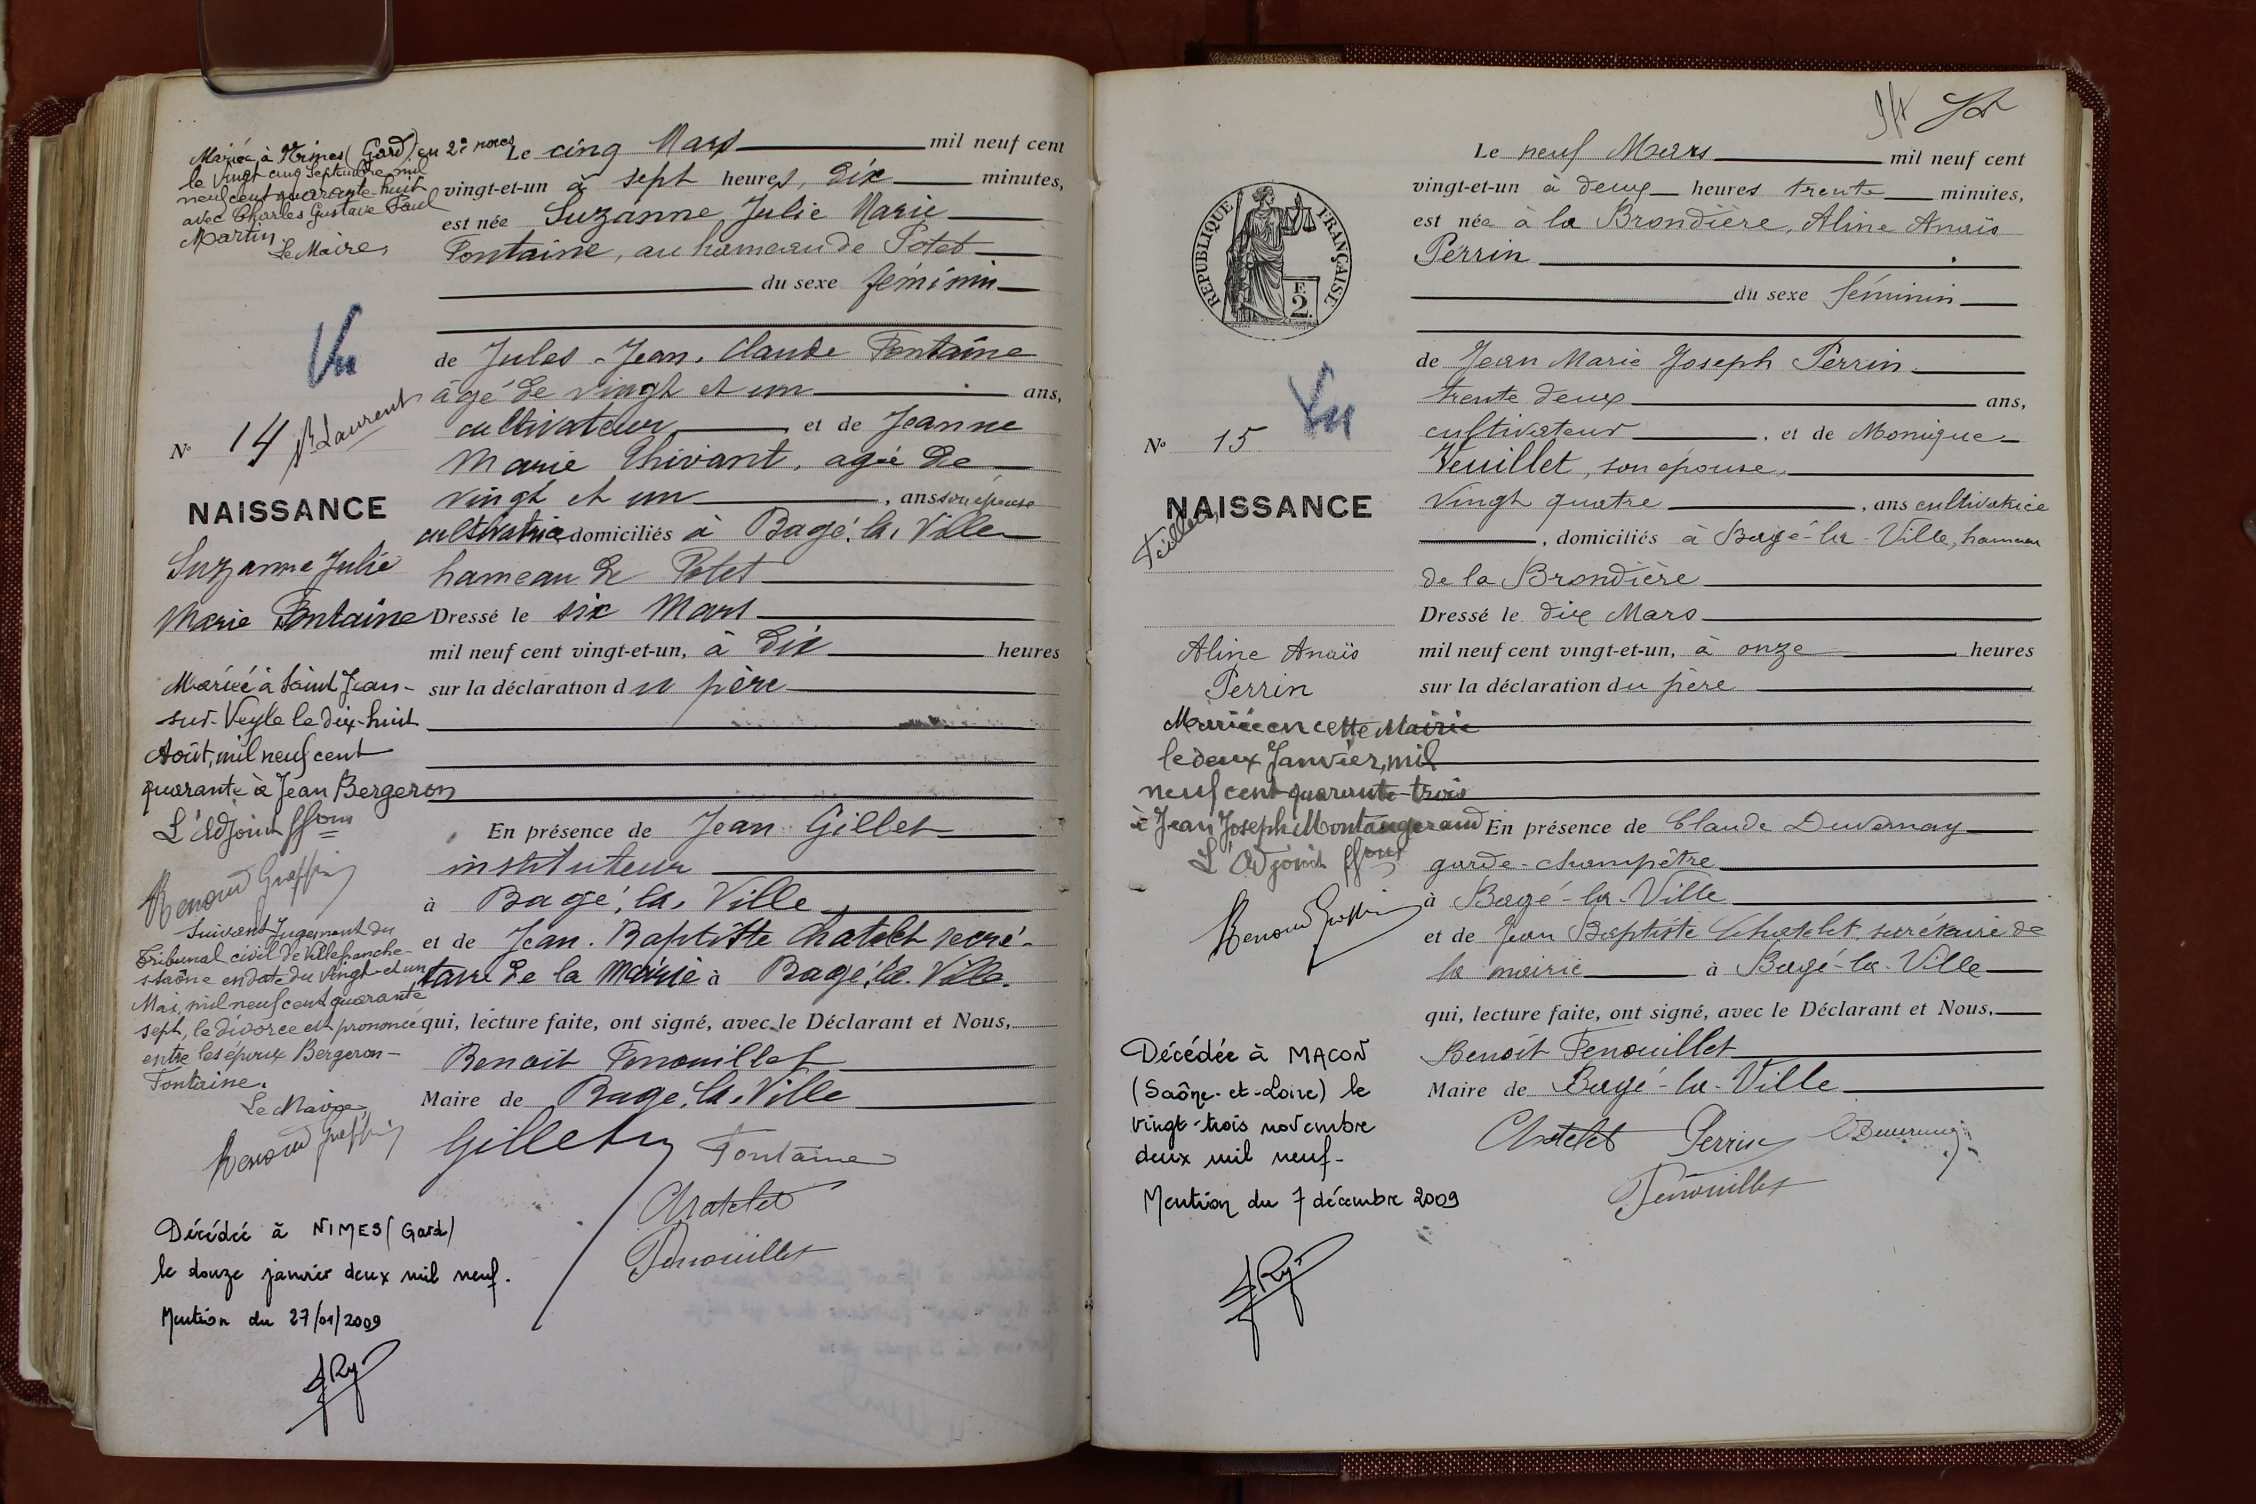 Mariée à Nîmes (Gard) en 2e noces
le vingt cinq Septembre mil
neuf cent quarante-huit
avec Charles Gustave Paul
Martin
Le Maire,
Vu
No 14
Laurent
NAISSANCE
Suzanne Julie
Marie Fontaine
Mariée à Saint Jean-
sur-Veyle le dix-huit
Août, mil neuf cent
quarante à Jean Bergeron
L'Adjoint ffons
Renoud Graffin
Suivant Jugement du
Tribunal civil de Villefranche-
s-Saône en date du vingt-et-un
Mai, mil neuf cent quarante
sept, le divorce est prononcé
entre les époux Bergeron-
Fontaine.
Le Maire,
Renoud Graffin
Décédée à NIMES (Gard)
le douze janvier deux mil neuf.
Mention du 27/01/2009
Le cinq Mars mil neuf cent
vingt-et-un à sept heures, dix minutes,
est née Suzanne, Julie Marie
Fontaine, au hameau de Potet
du sexe féminin
de Jules-Jean-Claude Fontaine
âgé de vingt et un ans,
cultivateur et de Jeanne
Marie Chivant, agée de
vingt et un, ans son épouse
cultivatrice domiciliés à Bagé-la-Ville
hameau de Potet
Dressé le six Mars
mil neuf cent vingt-et-un, à dix heures
sur la déclaration du père
En présence de Jean Gillet
instituteur
à Bagé-la-Ville
et de Jean-Baptiste Chatelet secré-
taire de la mairie à Bagé-la-Ville.
qui, lecture faite, ont signé, avec le Déclarant et Nous,
Benoit Fenouillet
Maire de Bagé-la-Ville
Gillet Fontaine
Chatelet
Fenouillet
REPUBLIQUE FRANÇAISE
F.
2.
Vu
No 15
NAISSANCE
Feillens
Aline Anaïs
Perrin
Mariée en cette Mairie
le deux Janvier, mil
neuf cent quarante-trois
à Jean Joseph Montangerand
L'Adjoint ffons
Renoud Graffin
Décédée à MACON
(Saône-et-Loire) le
vingt-trois novembre
deux mil neuf-
Mention du 7 décembre 2009
Le neuf Mars mil neuf cent
vingt-et-un à deux heures trente minutes,
est née à la Brondière, Aline Anaïs
Perrin
du sexe féminin
de Jean Marie Joseph Perrin
trente deux ans,
cultivateur, et de Monique
Veuillet, son épouse,
vingt quatre, ans cultivatrice
, domiciliés à Bagé-la-Ville, hameau
de la Brondière
Dressé le dix Mars
mil neuf cent vingt-et-un, à onze heures
sur la déclaration du père
En présence de Claude Duvernay
garde-champêtre
à Bagé-la-Ville
et de Jean Baptiste Chatelet, secrétaire de
la mairie à Bagé-la-Ville
qui, lecture faite, ont signé, avec le Déclarant et Nous,
Benoît Fenouillet
Maire de Bagé-la-Ville
Chatelet Perrin Duvernay
Fenouillet